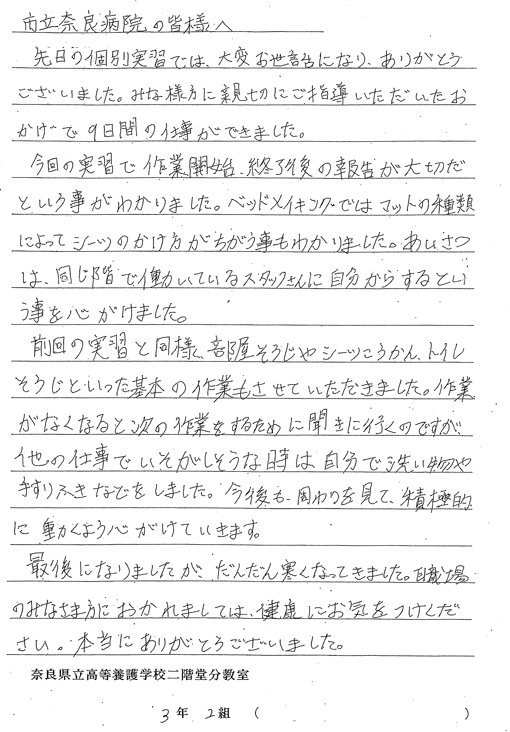 市立奈良病院の皆様へ
先日の個別実習では、大変お世話になり、ありがとう
ございました。みな様方に親切にご指導いただいたお
かげで9日間の仕事ができました。
今回の実習で作業開始、終了後の報告が大切だ
という事がわかりました。ベッドメイキングではマットの種類
によってシーツのかけ方がちがう事もわかりました。あいさつ
は、同じ階で働いているスタッフさんに自分からするとい
う事を心がけました。
前回の実習と同様、部屋そうじやシーツこうかん、トイレ
そうじといった基本の作業もさせていただきました。作業
がなくなると次の作業をするために聞きに行くのですが、
他の仕事でいそがしそうな時は自分で洗い物や
手すりふきなどをしました。今後も、周わりを見て、積極的
に動くよう心がけていきます。
最後になりましたが、だんだん寒くなってきました。職場
のみなさま方におかれましては、健康にお気をつけくだ
さい。本当にありがとうございました。
奈良県立高等養護学校二階堂分教室
3年 2組 ( )